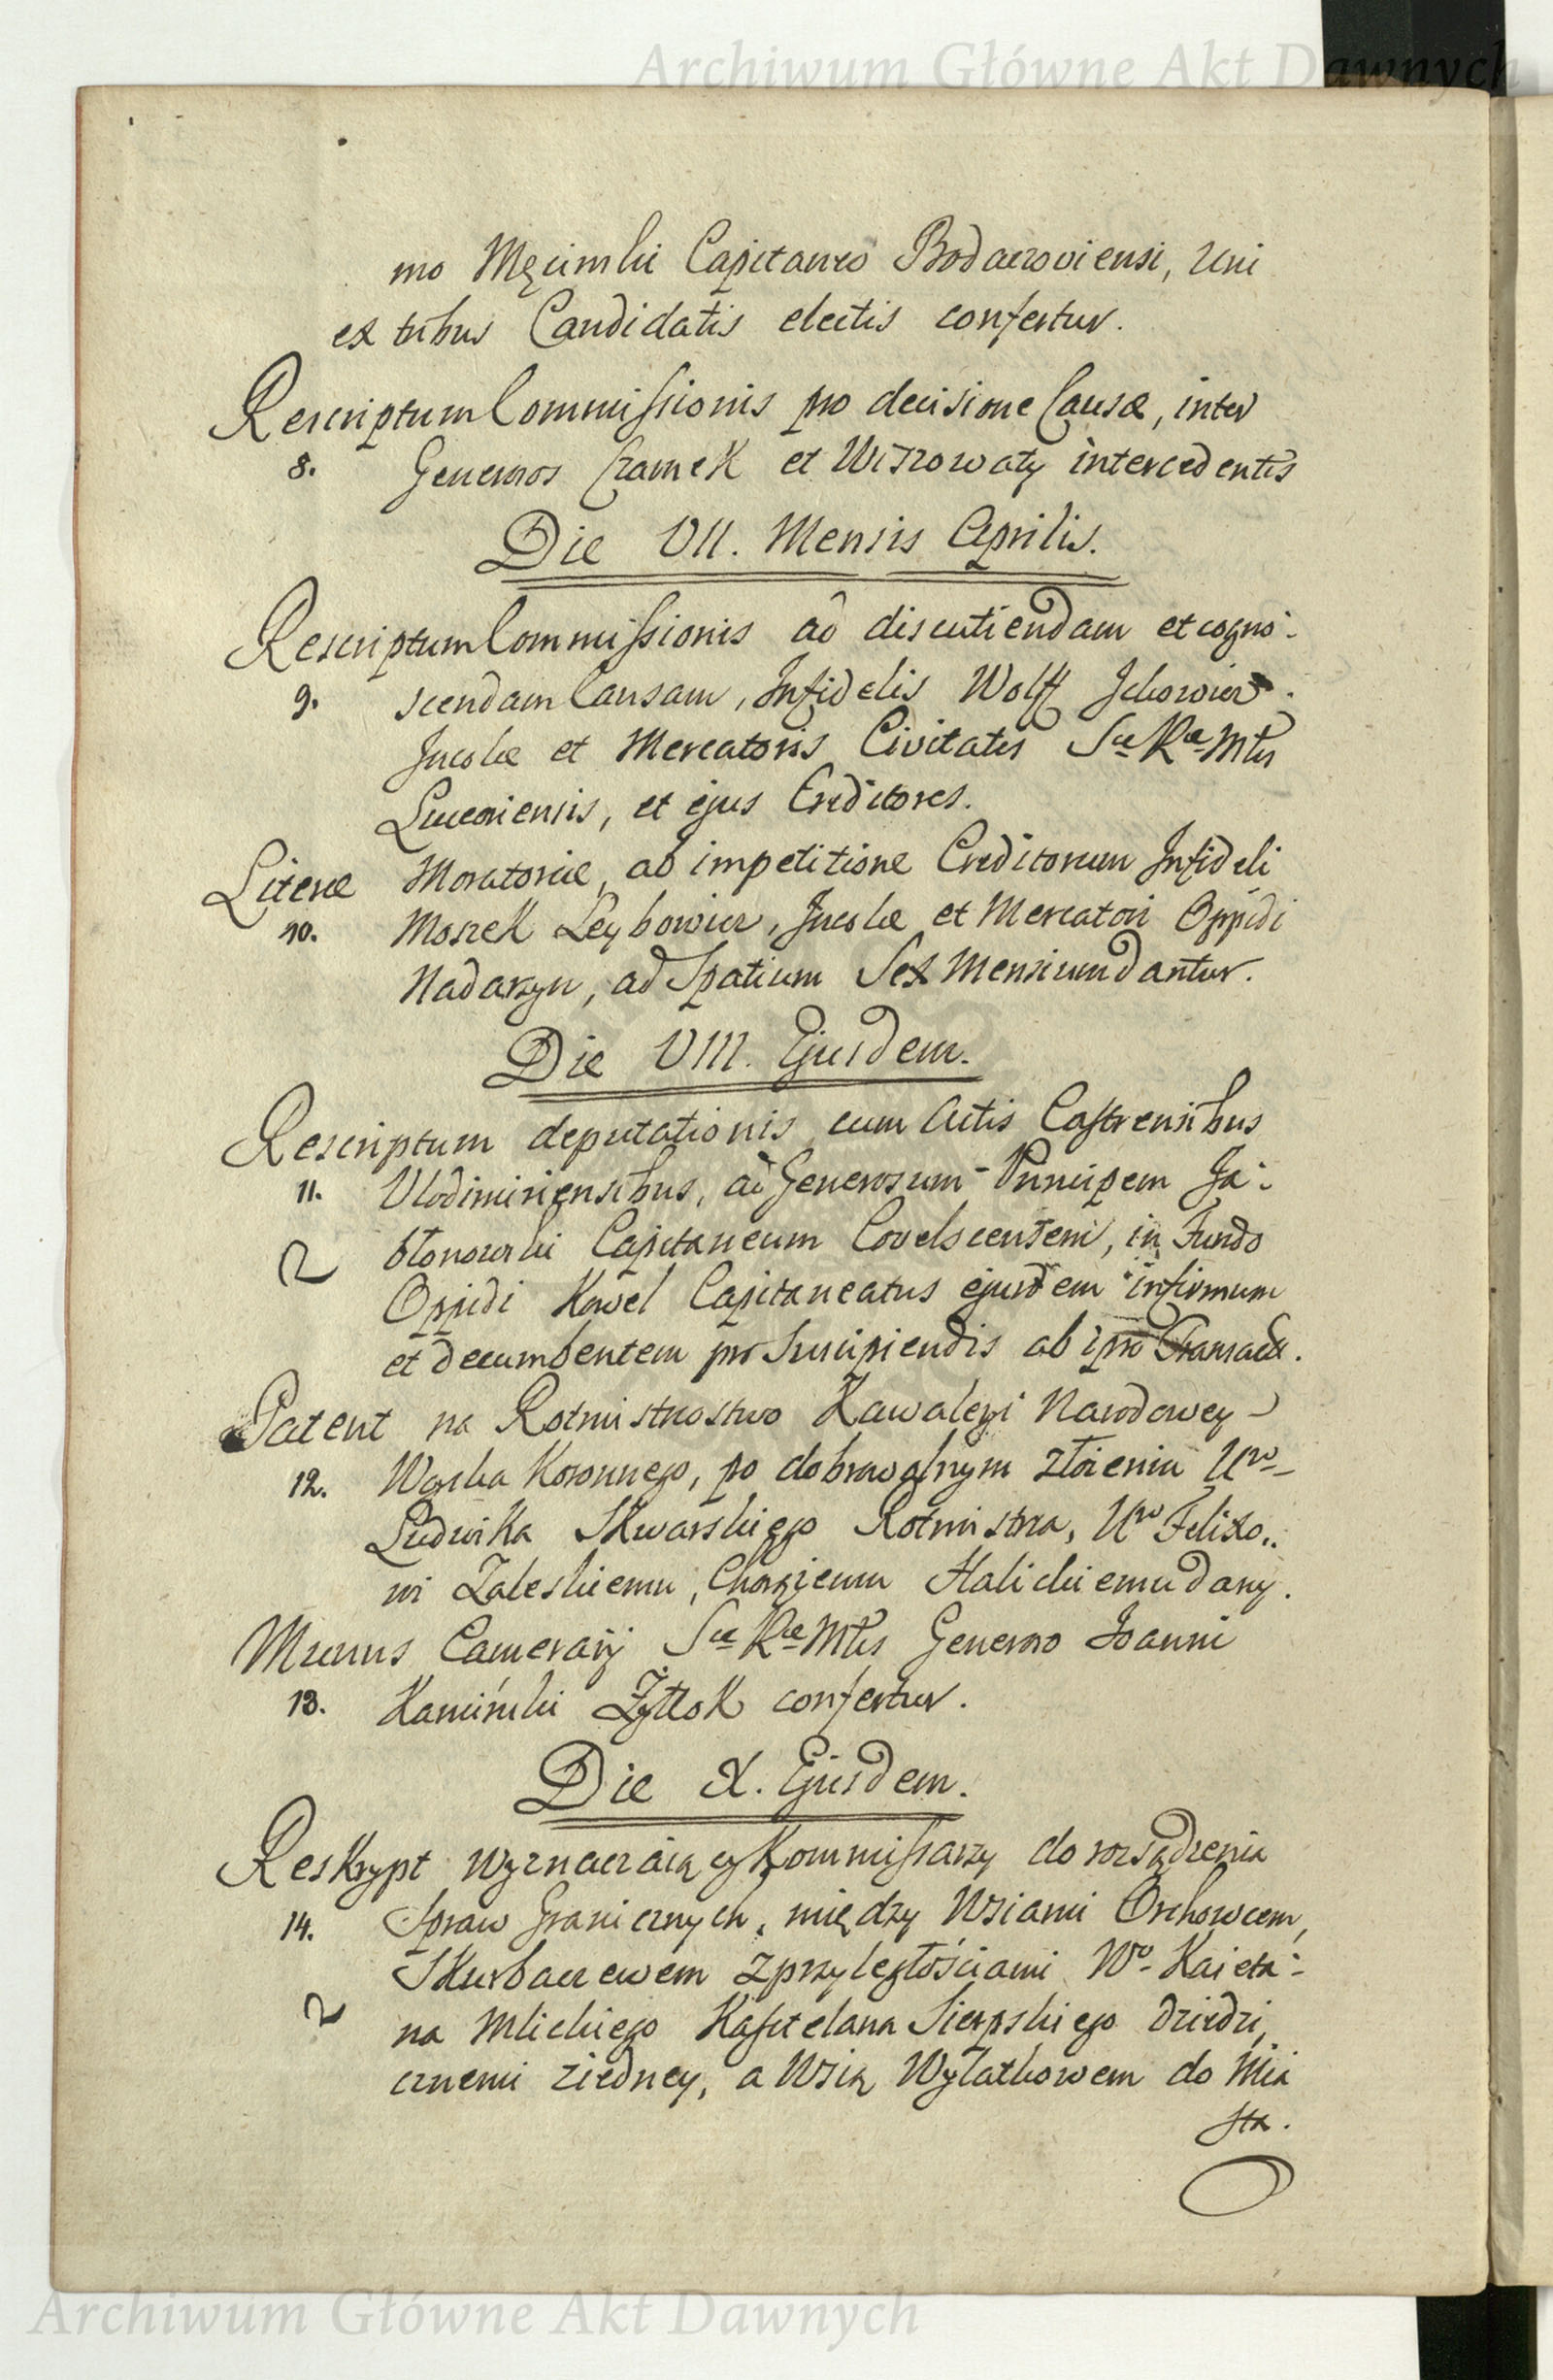 Archiwum Główne Akt Dawnych
mo Męcimski Capitaneo Bodaczoviensi, Uni
ex tribus Candidatis electis confertur.
Rescriptum Commissionis pro decisione Causæ, inter
8. Generosos Czamek et Wiszowaty intercedentis
Die VII. Mensis Aprilis.
Rescriptum Commissionis ad discutiendam et cogno-
9. scendam Causam, Infidelis Wolff
Incolæ et Mercatoris Civitatis Sæ Ræ Mtis
et ejus Creditores.
Literæ Moratoriæ, ab impetitione Creditorum Infideli
10. Moszek Leybowicz, Incolæ et Mercatori Oppidi
Nadarzyn, ad Spatium Sex Mensium dantur.
Die VIII. Ejusdem.
Rescriptum deputationis cum Actis Castrensibus
11. Vlodimiriensibus, ad Generosum Principem Ja-
błonowski Capitaneum Covelscensem, in Fundo
Oppidi Kowel Capitaneatus ejusdem infirmum
et decumbentem pro Suscipiendis ab ipso Transact.
Patent na Rotmistrzostwo Kawaleryi Narodowey
12. Woyska Koronnego, po dobrowolnym złożeniu Uro
Ludwika Skwarskiego Rotmistrza, Uro Felixo..
wi Zaleskiemu, Chorążemu Halickiemu dany.
Munus Camerarij Sæ Ræ Mtis Generoso Joanni
13. Kamiński Żyttok confertur.
Die X. Ejusdem.
Reskrypt wyznaczaiący Kommissarzy do rozsądzenia
14. Spraw Granicznych, między Wsiami Orchowcem,
Skurbaczewem z przyległościami Wo Kaieta-
na Mlickiego Kasztelana Sierpskiego dziedzi,
cznemi ziedney, a Wsią Wylatkowem do Mia
sta.
Archiwum Główne Akt Dawnych